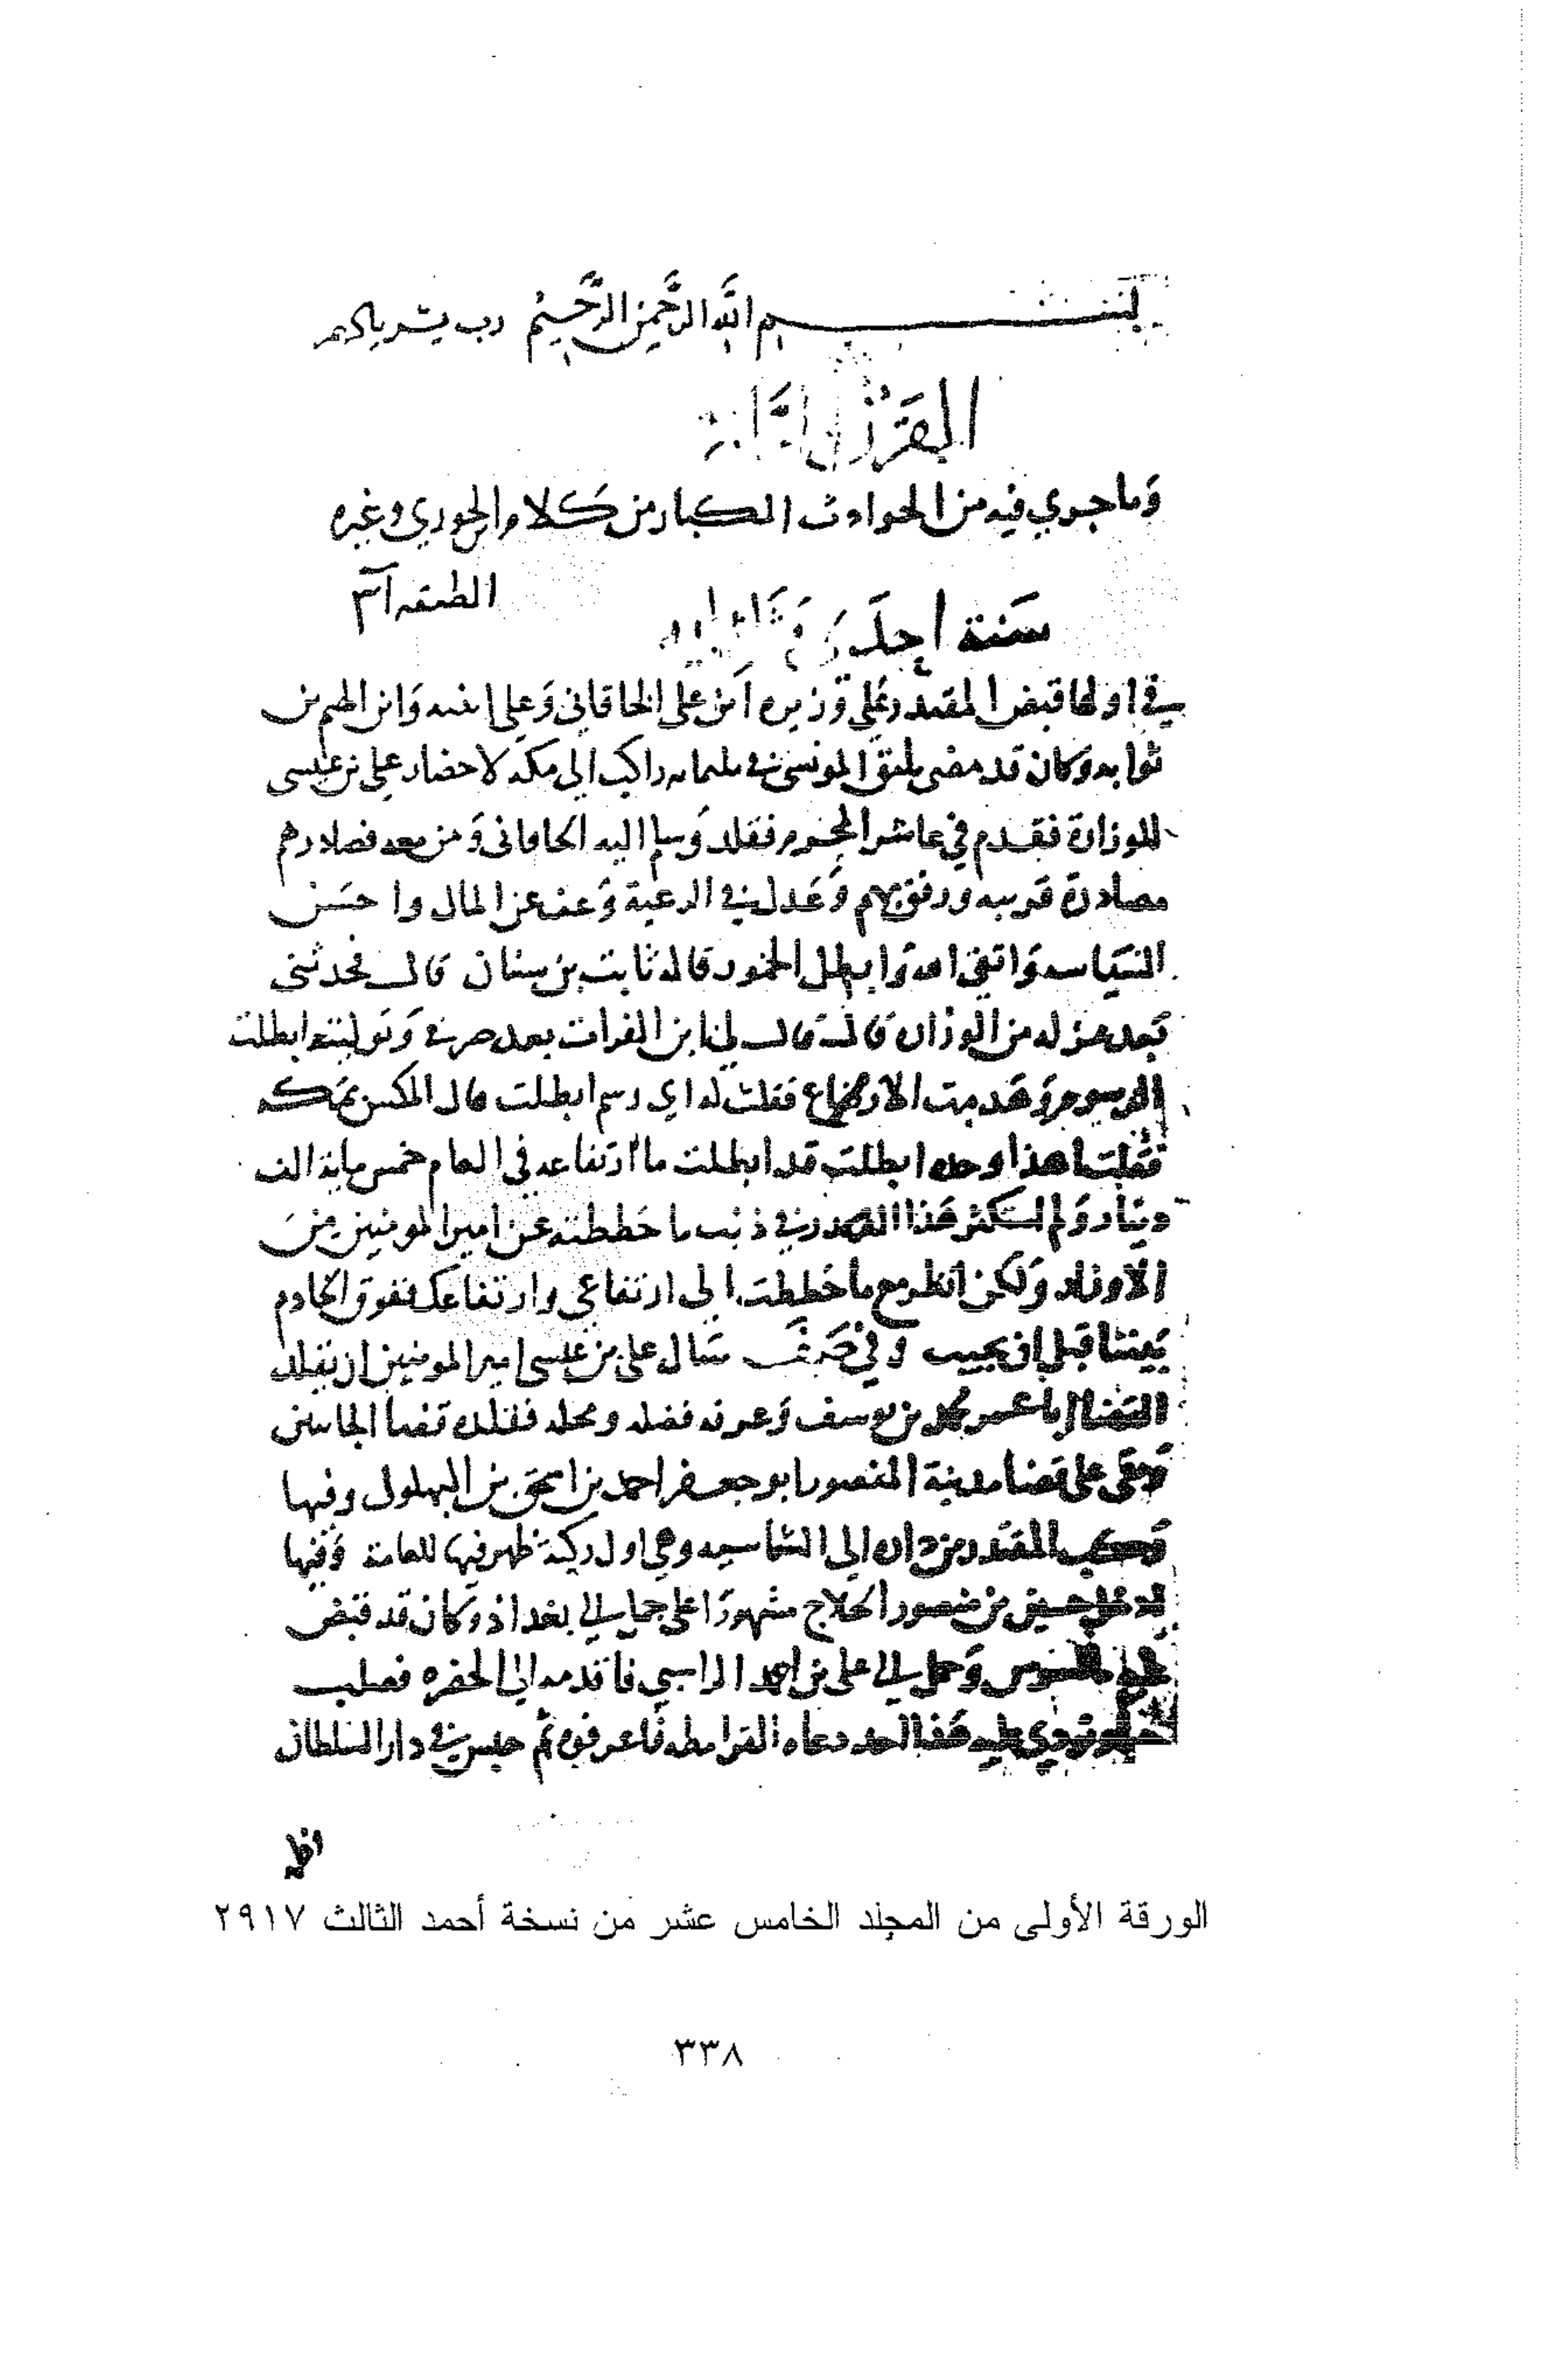 بسم الله الرحمن الرحيم رب يسر يا كريم
القرن الرابعة
وما جري فيه من الحوادث الكبار من كلام الجوزي وغيره
الطبقه
سنة احدى وثلثمايه
في اولها قبض المقتدر علي وزيره ابن على الخاقاني وعلي ابنيه وابن الهيثم بن
ثوابه وكان قد مضى يلبق المونسي في ثلثمايه راكب الي مكة لاحضار علي بن عيسى
للوزارة فقدم في عاشر المحرم فقلد وسلم اليه الخاقاني ومن معه فصادرهم
مصادرة قريبه ورفق بهم وعدل في الرعية وعف عن المال واحسن
السياسه واتقى الله وابطل الخمور قاله ثابت بن سنان قال فحدثني
بعد عزله من الوزارة قال قال لي ابن الفرات بعد صرفي وتوليته ابطلت
الرسوم وهدمت الارتفاع فقلت له اي رسم ابطلت قال المكس بمكه
فقلت اهذا وحده ابطلت قد ابطلت ما ارتفاعه في العام خمس ماية الف
دينار ولم استكثر هذا القدر في ذنب ما حططته عن امير المومنين من
الاوزار ولكن انظر مع ما حططت الى ارتفاعي وارتفاعك ففرق الخادم
بيننا قبل ان يجيب وفي صفر سال علي بن عيسى امير المومنين ان يقلد
القضا ابا عمر محمد بن يوسف وعرفه فضله ومحله فقلده قضا الجانبين
وبقى على قضا مدينة المنصور ابو جعفر احمد بن اسحق بن البهلول وفيها
ركب المقتدر من داره الى الشماسيه وهي اول ركبة ظهر فيها للعامة وفيها
ادخل حسين بن منصور الحلاج مشهورا على جمل الي بغداذ وكان قد قبض
عليه بالسوس وحمل الي علي بن احمد الراسبي فاقدمه الى الحضره فصلب
حيا ونودي عليه هذا احد دعاه القرامطه فاعرفوه ثم حبس في دار السلطان
الورقة الأولى من المجلد الخامس عشر من نسخة أحمد الثالث ٢٩١٧
٣٣٨